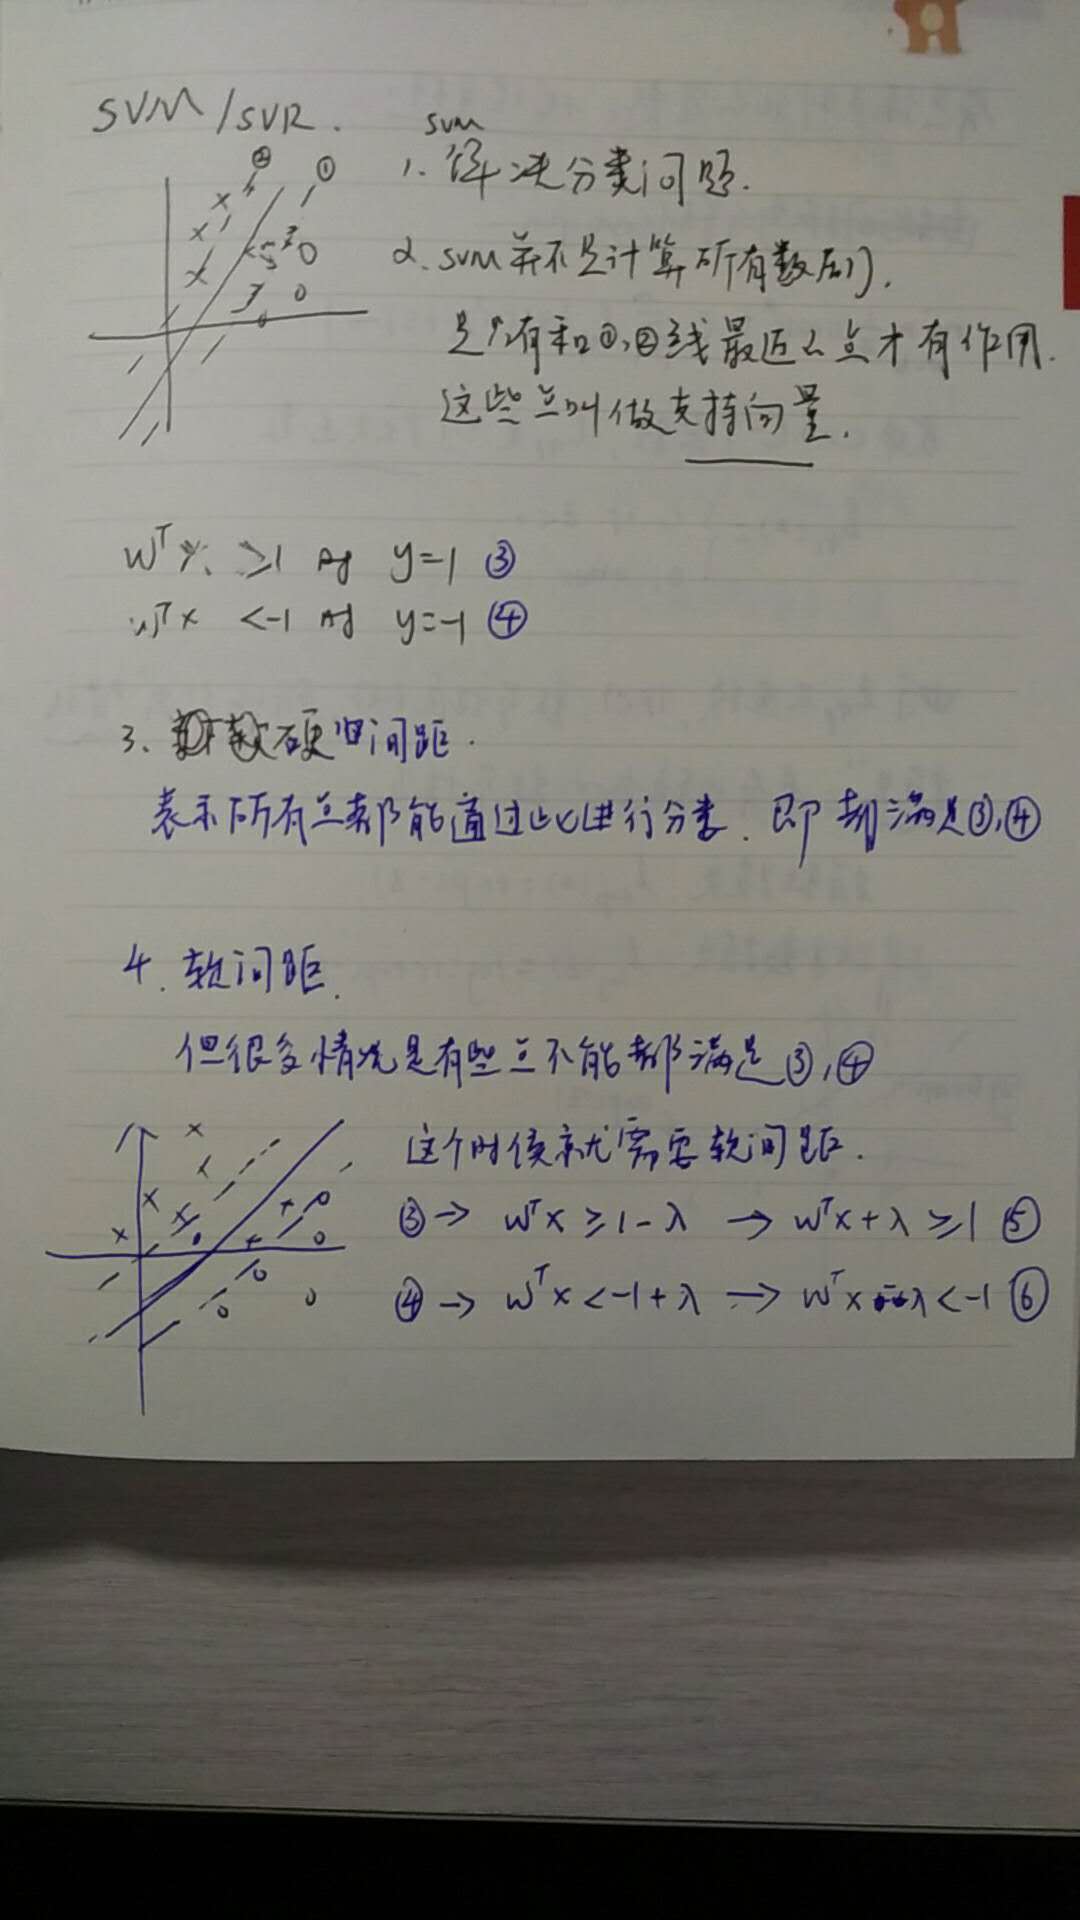 SVM/SVR.
② ①
SVM
1. 解决分类问题.
2. SVM并不是计算所有数据的,
是只有和①,②线最近的点才有作用.
这些点叫做支持向量.
wᵀx ≥1 时 y=1 ③
wᵀx <-1 时 y=-1 ④
3. 硬间距.
表示所有点都能通过此进行分类. 即都满足③,④
4. 软间距.
但很多情况是有些点不能都满足③,④
这个时候就需要软间距.
③→ wᵀx ≥1-λ → wᵀx+λ ≥1 ⑤
④→ wᵀx <-1+λ → wᵀx-λ <-1 ⑥